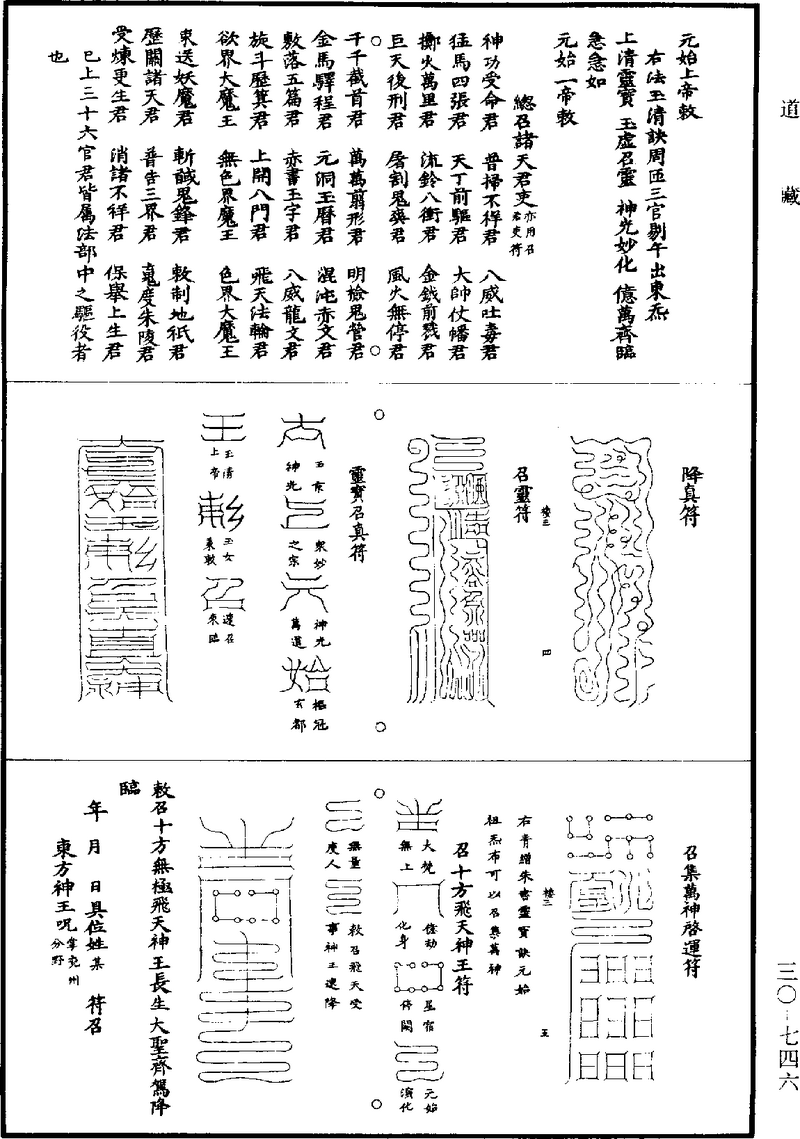 道藏
元始上帝敕
右法玉清訣周匝三官剔午出東炁
上清靈寶 玉虛召靈 神光妙化 億萬齊臨
急急如
元始一帝敕
總召諸天君吏亦用召君吏符
神功受命君 普掃不祥君 八威吐毒君
猛馬四張君 天丁前驅君 大帥仗幡君
擲火萬里君 流鈴八衝君 金鉞前戮君
巨天後刑君 屠割鬼爽君 風火無停君
千千截首君 萬萬剪形君 明檢鬼營君
金馬驛程君 元洞玉曆君 混沌赤文君
敷落五篇君 赤書玉字君 八威龍文君
旋斗歷箕君 上開八門君 飛天法輪君
欲界大魔王 無色界魔王 色界大魔王
束送妖魔君 斬馘鬼鋒君 敕制地祇君
歷關諸天君 普告三界君 魂度朱陵君
受煉更生君 消諸不祥君 保舉上生君
已上三十六官君皆屬法部中之驅役者
也
降真符
樓三 四
召靈符
靈寶召真符
玉京神光
眾妙之宗
神光萬道
樞冠玄都
玉清上帝
玉女奉敕
速召來臨
召集萬神啓運符
右青繒朱書靈寶訣元始
樓三 五
祖炁布可以召集萬神
召十方飛天神王符
大梵無上
億劫化身
星宿停闕
元始演化
無量度人
敕召飛天受事神王速降
敕召十方無極飛天神王長生大聖齊駕降
臨
年 月 日具位姓某 符召
東方神王呪掌兗州分野
三〇-七四六